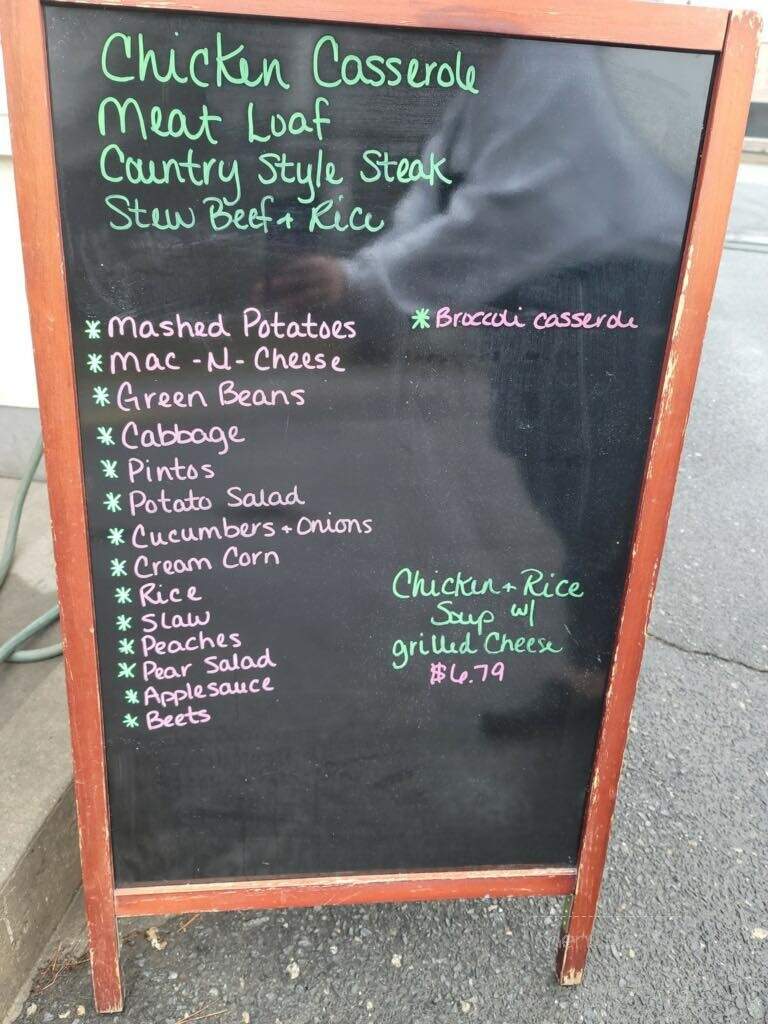 Chicken Casserole
Meat Loaf
Country Style Steak
Stew Beef + Rice
* Mashed Potatoes
* Mac-N-Cheese
* Green Beans
* Cabbage
* Pintos
* Potato Salad
* Cucumbers + Onions
* Cream Corn
* Rice
* Slaw
* Peaches
* Pear Salad
* Applesauce
* Beets
* Broccoli casserole
Chicken + Rice
Soup w/
grilled Cheese
$6.79